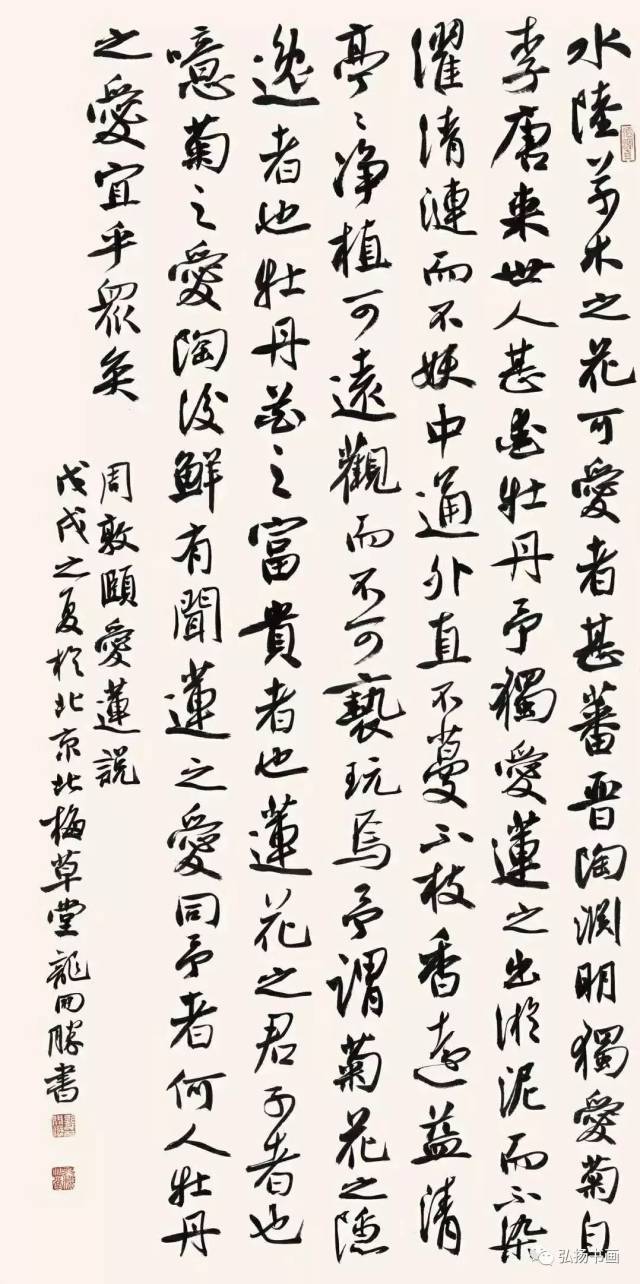 水陸草木之花可愛者甚蕃晋陶淵明獨愛菊自
李唐來世人甚愛牡丹予獨愛蓮之出淤泥而不染
濯清漣而不妖中通外直不蔓不枝香遠益清
亭〻净植可遠觀而不可褻玩焉予謂菊花之隱
逸者也牡丹花之富貴者也蓮花之君子者也
噫菊之愛陶後鮮有聞蓮之愛同予者何人牡丹
之愛宜乎衆矣
周敦頤愛蓮説
戊戌之夏於北京北梅草堂龍回勝書
弘扬书画